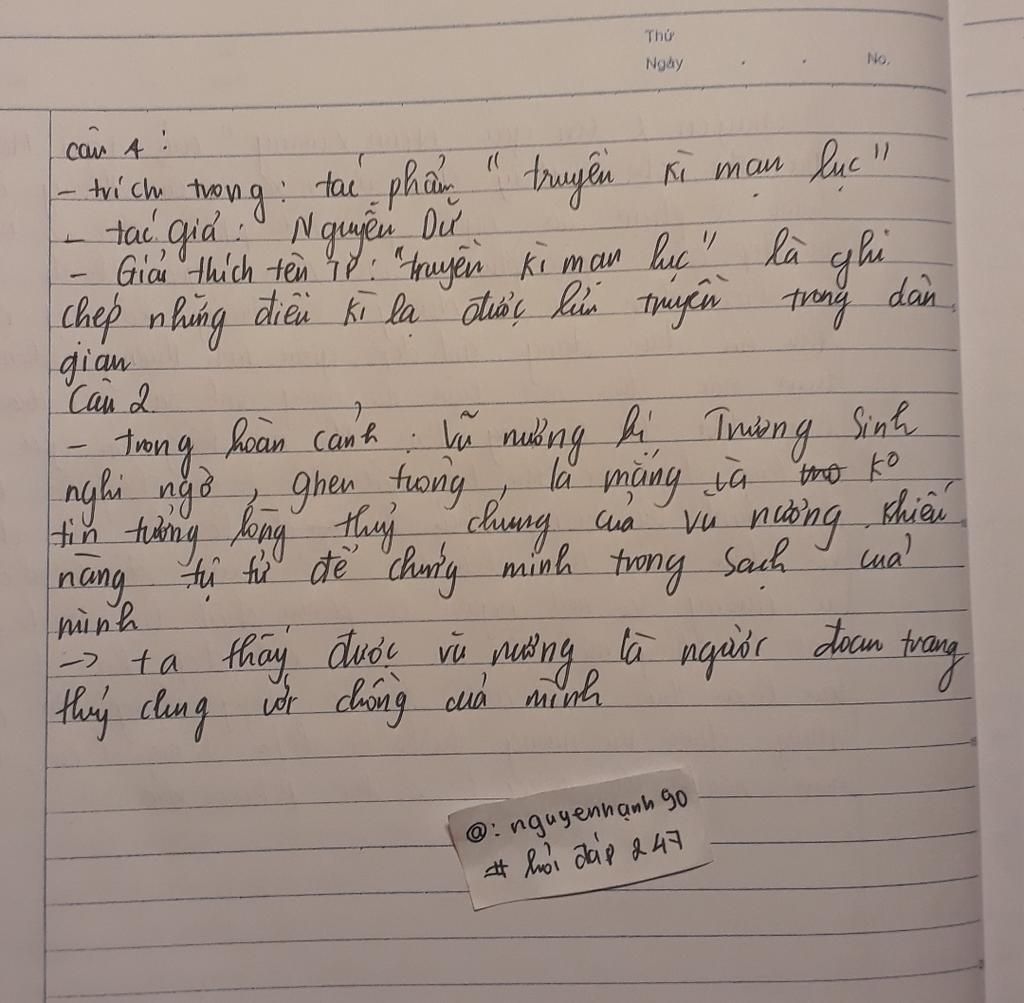 Thứ
Ngày . . No.
câu 1 :
- trích trong: tác phẩm " truyền kì mạn lục"
- tác giả: Nguyễn Dữ
- Giải thích tên TP: "truyền kì mạn lục" là ghi
chép những điều kì lạ được lưu truyền trong dân
gian
Câu 2
- trong hoàn cảnh : Vũ nương bị Trương Sinh
nghi ngờ , ghen tuông , la mắng và ko
tin tưởng lòng thuỷ chung của vũ nương khiến
nàng tự tử để chứng minh trong sạch của
mình
-> ta thấy được vũ nương là người đoan trang
thuỷ chung với chồng của mình
@: nguyenhạnh90
# hỏi đáp 247